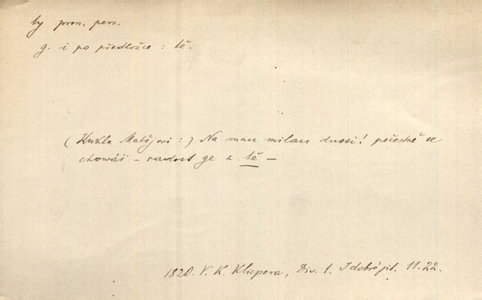 ty pron. pers.
g. i po předložce : tě.
(Kukla Matějovi :) Na mau milau dussi! počestně se
chowáš – radost ge z tě –
1820. V. K. Klicpera, Div. 1. I dobré jit. 11.22.